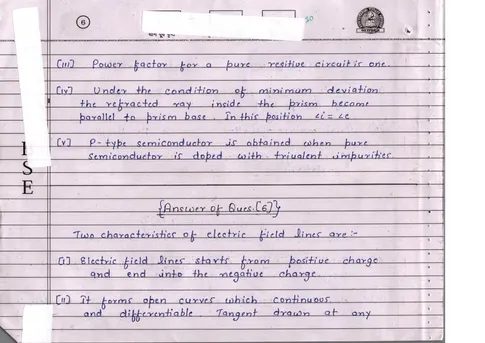 6
[iii] Power factor for a pure resitive circuit is one.
[iv] Under the condition of minimum deviation
the refracted ray inside the prism become
parallel to prism base. In this position ∠i = ∠e
[v] P-type semiconductor is obtained when pure
semiconductor is doped with trivalent impurities.
S
E
{Answer of Ques.[6]}
Two characteristics of electric field lines are :-
[i] Electric field lines starts from positive charge
and end into the negative charge.
[ii] It forms open curves which continuous
and differentiable. Tangent drawn at any